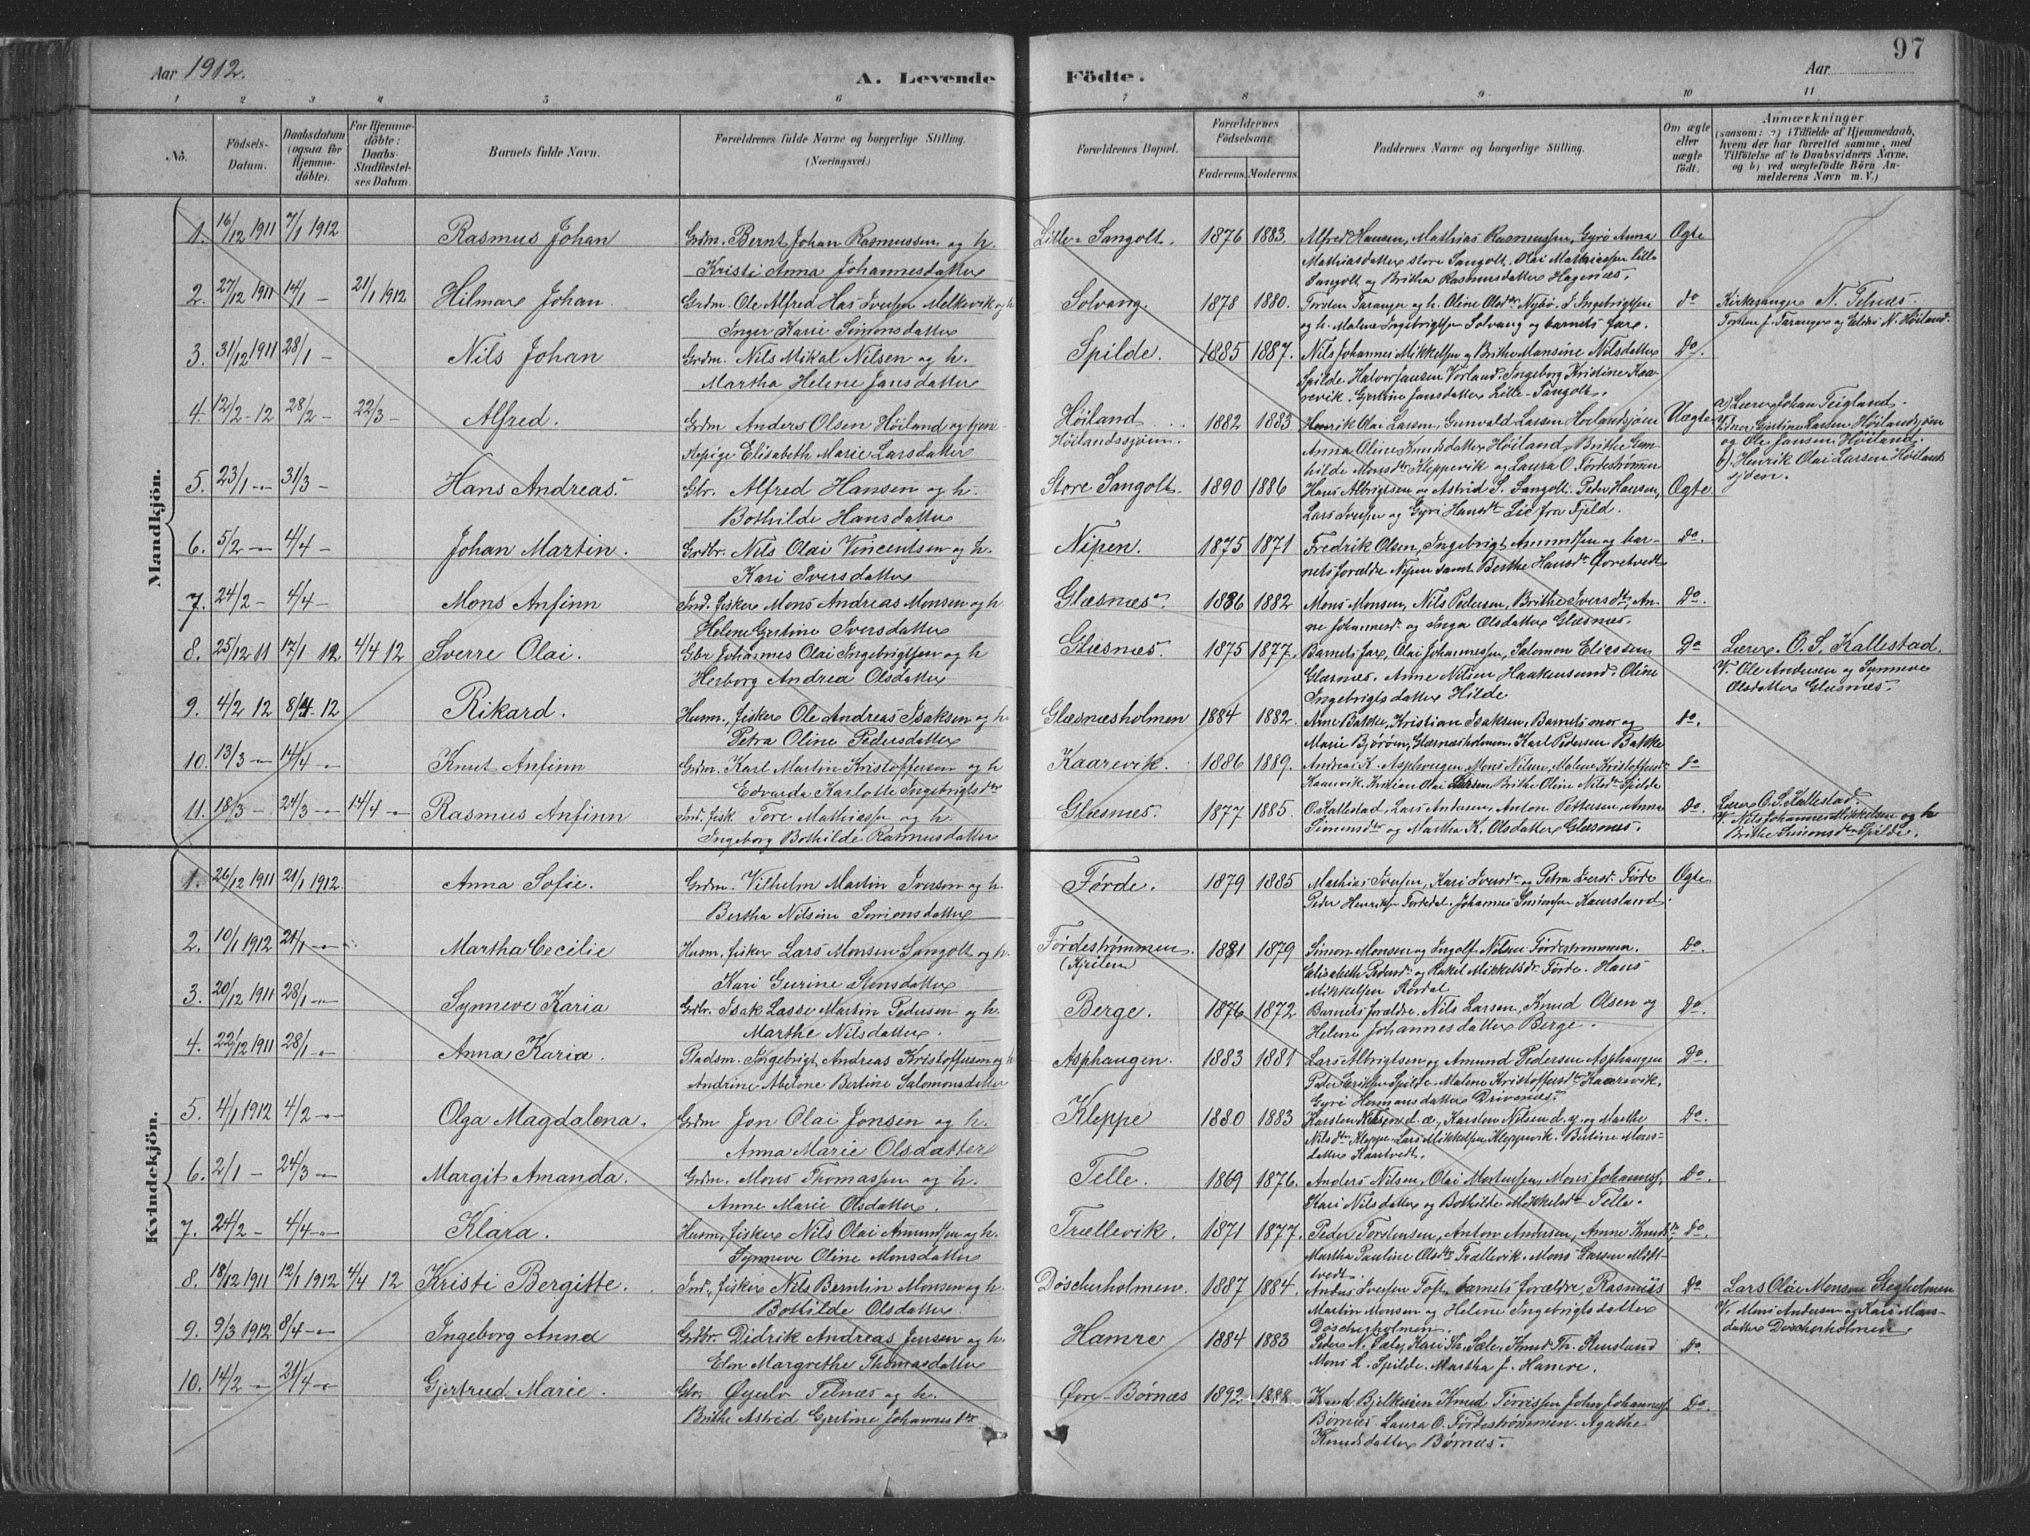 97
Aar 1912.
A. Levende Födte.
Aar
1 2 3 4 5 6 7 8 9 10 11
No.
Födsels-Datum.
Daabsdatum (ogsaa for Hjemmedöbte).
For Hjemmedöbte: Daabs-Stadfæstelses Datum.
Barnets fulde Navn.
Forældrenes fulde Navne og borgerlige Stilling. (Næringsvei.)
Forældrenes Bopæl.
Forældrenes Födselsaar.
Faderens. Moderens.
Faddernes Navne og borgerlige Stilling.
Om ægte eller uægte födt.
Anmærkninger
(saasom: a) i Tilfælde af Hjemmedaab, hvem der har forrettet samme, med Tilföielse af to Daabsvidners Navne, og b) ved uægtefödte Börn Anmelderens Navn m. V.)
Mandkjön.
1. 16/12 1911 7/1 1912 Rasmus Johan Grdm. Bernt Johan Rasmussen og h. Lille-Sangolt. 1876 1883. Alfred Hansen, Mathias Rasmussen, Gyro Anna Ægte
Kristi Anna Johannesdatter Mathiasdatter store Sangolt. Olai Mathiassen lille
Sangolt og Britha Rasmusdatter Hagenæs.
2. 27/12 1911 14/1 - 21/1 1912 Hilmar Johan. Grdm. Ole Alfred Has Iversen Melkevik og h Solvang. 1878 1880. Torsten Taranger og h. Oline Olsdtr Nybø. I. Ingebrigtsen do Kirkesanger N. Telnes.
Inger Kari Simonsdatter og h. Malene Ingebrigtsen Solvang og barnets far. Torsten J. Taranger og Elias N. Høiland.
3. 31/12 1911 28/1 - Nils Johan Grdm. Nils Mikal Nilsen og h. Spilde. 1885 1887. Nils Johannes Mikkelsen og Brithe Monsine Nilsdatter Do.
Martha Helene Jansdatter Spilde. Halvor Jansen Vorland. Ingeborg Kristine Kaarevik. Gjertine Jansdatter Lille-Sangolt.
4. 12/2 - 12 28/2 - 22/3 - Alfred. Grdm Anders Olsen Høiland og tjen- Høiland 1882 1883 Henrik Olai Larsen, Gunvald Larsen Høilandssjøen Uægte a) Lærer Johan Teigland.
stepige Elisabeth Marie Larsdatter Høilandssjøen. Anna Oline Knutsdatter Høiland, Brithe Gunhilde Monsdtr Kleppevik og Laura O. Førdestrømmen V: Gjertine Larsen Høilandssjøen og Ole Jansen Høiland.
b) Henrik Olai Larsen Høilandssjøen.
5. 23/1 - 31/3 - Hans Andreas. Gbr. Alfred Hansen og h. Store Sangolt. 1890 1886 Hans Albrigtsen og Astrid S. Sangolt. Peder Hansen, Ægte
Bothilde Hansdatter Lars Iversen og Gyri Hansdtr Lie fra Fjeld.
6. 5/2 - 4/4 - Johan Martin. Grdbr. Nils Olai Vincentsen og h. Nipen. 1875 1871 Fredrik Olsen, Ingebrigt Amundsen og bar- Do.
Kari Iversdatter nets forældre Nipen samt Berthe Hansdtr Øvretvedt
7. 24/2 - 4/4 - Mons Anfinn Ind. fisker Mons Andreas Monsen og h Glæsnæs. 1886 1882 Mons Monsen, Nils Pedersen, Brithe Iversdtr, An- Do.
Helene Gjertine Iversdatter ne Johannesdtr og Inga Olsdatter Glæsnæs.
8. 25/12 11 17/1 12 4/4 12 Sverre Olai. Gbr Johannes Olai Ingebrigtsen og h Glæsnæs. 1875 1877. Barnets far, Olai Johannessen, Salomon Eliesen Do Lærer O. S. Kallestad.
Herborg Andrea Olsdatter Glæsnæs. Anne Nilsen Haakensund. Oline Ingebrigtsdatter Hilde V. Ole Andersen og Synneve Olsdatter Glæsnæs.
9. 4/2 12 8/4 12 Rikard. Husm. fisker Ole Andreas Isaksen og h. Glæsnæsholmen 1884 1882. Arne Bakke, Kristian Isaksen, Barnets mor og do.
Petra Oline Pedersdatter Marie Bjørøen, Glæsnæsholmen. Karl Pedersen Bakke
10. 13/3 - 14/4 - Knut Anfinn Grdm. Karl Martin Kristoffersen og h Kaarevik. 1886 1889. Andreas K. Asphaugen, Mons Nilsen, Malene Kristoffersdtr do
Edvarda Karlotte Ingebrigtsdtr Kaarevik. Kristian Olai Larsen Brithe Oline Nilsdtr Spilde
11. 18/3 - 24/3 - 14/4 - Rasmus Anfinn Ind. fisk. Tore Mathiassen og h. Glæsnes. 1877 1885. O. Kallestad, Lars Andersen, Anton Pettersen, Anna Do. Lærer O. S. Kallestad.
Ingeborg Bothilde Rasmusdatter Simonsdtr og Martha K. Olsdatter Glæsnæs. V. Nils Johannes Mikkelsen og h Brithe Simonsdtr Spilde.
Kvindekjön.
1. 26/12 1911 21/1 1912 Anna Sofie. Grdm. Vilhelm Martin Iversen og h. Førde. 1879 1885 Mathias Iversen, Kari Iversdtr og Petra Iversd. Førde Ægte
Bertha Nilsine Simonsdatter Peder Henriksen Førdedal. Johannes Simonsen Kaursland.
2. 10/1 1912 21/1 - Martha Cecilie Husm. fisker Lars Monsen Sangolt og h. Førdestrømmen 1881 1879 Simon Monsen og Ingolf Nilsen Førdestrømmen. Do.
Kari Gurine Monsdatter (Kjeilen) Elisabeth Pedersdtr og Rakel Mikkelsdtr Førde. Hans Mikkelsen Rørdal
3. 20/12 1911 28/1 - Synneve Karia Grdbr. Isak Lasse Martin Pedersen og h. Berge. 1876 1872 Barnets forældre. Nils Larsen, Knud Olsen og Do.
Marthe Nilsdatter. Helene Johannesdatter Berge.
4. 22/12 1911 28/1 - Anna Karia. Pladsm. Ingebrigt Andreas Kristoffersen og h Asphaugen. 1883 1881 Lars Albrigtsen og Amund Pedersen Asphaugen Do
Andrine Abelone Bertine Salomonsdatter Peder Eriksen Spilde. Malene Kristoffersdtr Kaarevik. Gyri Hermansdatter Drivenæs.
5. 4/1 1912 4/2 - Olga Magdalena. Grdm Jon Olai Jonsen og h. Kleppe 1880 1883 Karsten Nilsen d. æ, Karsten Nilsen d. y. og Marthe Do.
Anna Marie Olsdatter Nilsdtr Kleppe. Lars Mikkelsen Kleppevik. Bertine Monsdatter Kaartvedt.
6. 2/1 - 24/3 - Margit Amanda. Grdm. Mons Thomassen og h. Telle. 1869 1876. Anders Nilsen, Olai Mortensen, Mons Johanness. Do.
Anne Marie Olsdatter. Kari Nilsdatter og Bothilde Mikkelsdtr Telle.
7. 24/2 - 4/4 - Klara. Husm. fisker Nils Olai Amundsen og h. Trællevik. 1871 1877. Peder Torstensen, Anton Andersen, Anne Knutsdtr do.
Synneve Oline Monsdatter Martha Pauline Olsdtr Trællevik. Mons Larsen Midttvedt.
8. 18/12 1911 12/1 1912 4/4 12 Kristi Bergitte. Ind., fisker Nils Berntin Monsen og h. Døscherholmen. 1887 1884. Anders Iversen Toft, barnets forældre, Rasmus Do Lars Olai Monsen Stegholmen
Bothilde Olsdatter. Martin Monsen og Helene Ingebrigtsdatter Døscherholmen. V. Mons Andersen og Kari Monsdatter Døscherholmen.
9. 9/3 1912 8/4 - Ingeborg Anna Grdbr. Didrik Andreas Jensen og h. Hamre 1884 1883 Peder N. Sæle, Kari Th. Sæle, Knud Th. Rensland Do.
Elen Margrethe Thomasdatter Mons L. Spilde. Martha J. Hamre.
10. 14/2 - 21/4 - Gjertrud Marie. Gbr. Øyulv Telnæs og h. Øvre-Børnæs 1892 1888. Knud Bjelkeien Knud Torrissen John Johannes. Do.
Brithe Astrid Gjertine Johannesdtr Børnæs. Laura O. Førdestrømmen. Agathe Knudsdatter Børnæs.